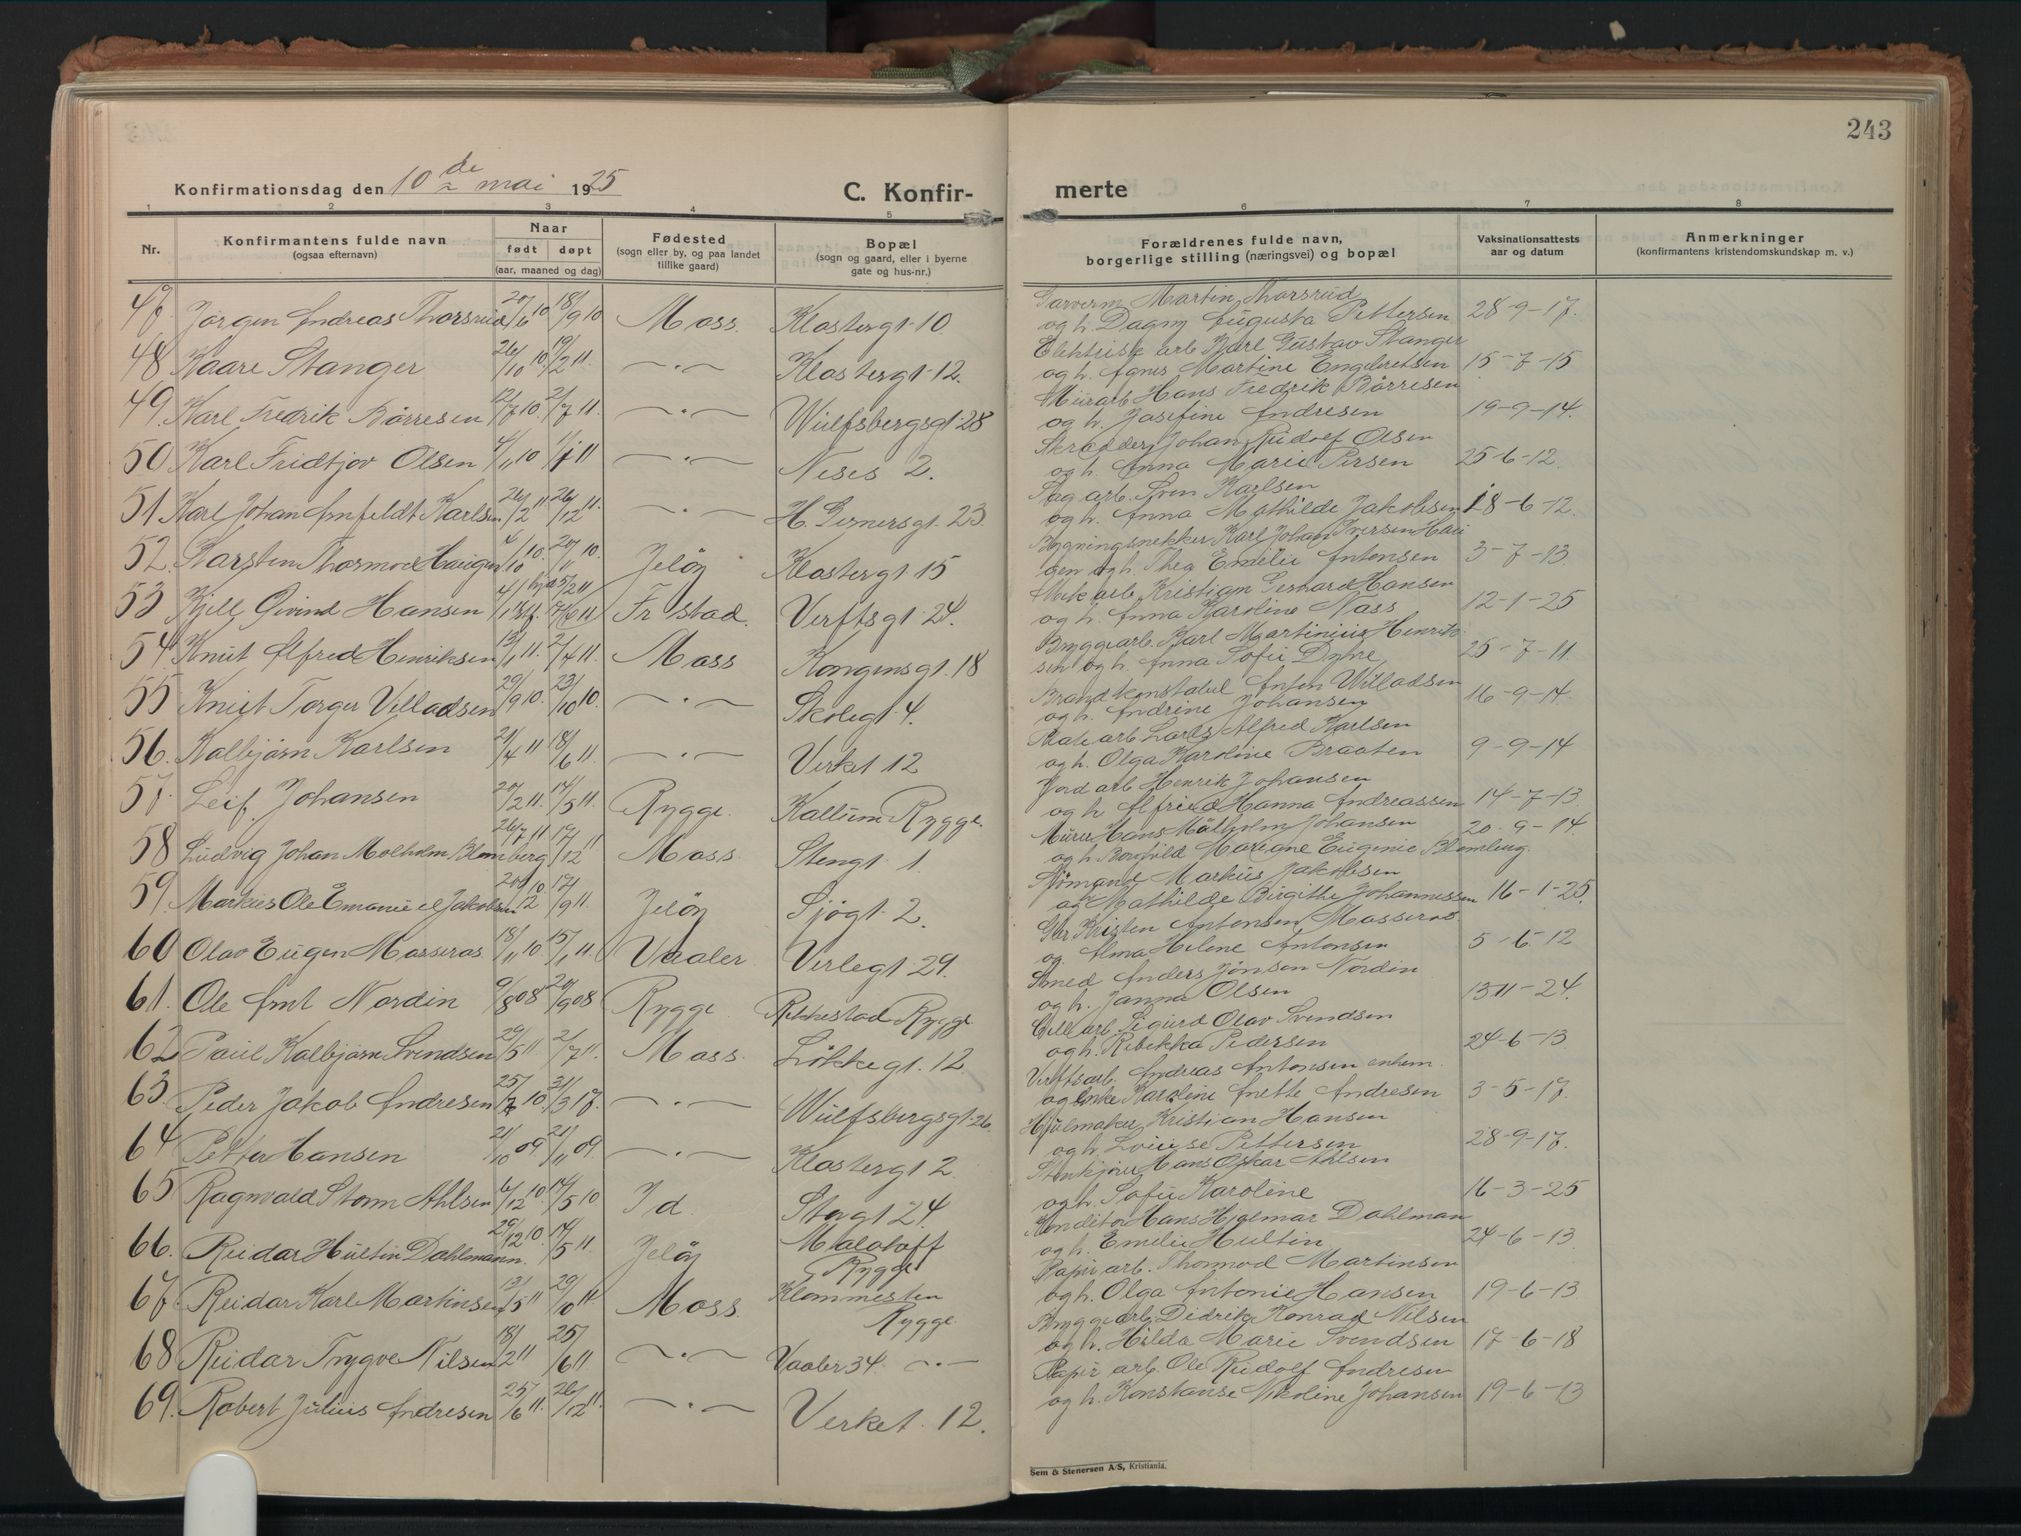 243
Konfirmationsdag den 10 de mai 1925
C. Konfir-
merte
1 2 3 4 5 6 7 8
Nr.
Konfirmantens fulde navn
(ogsaa efternavn)
Naar
født døpt
(aar, maaned og dag)
Fødested
(sogn eller by, og paa landet
tillike gaard)
Bopæl
(sogn og gaard, eller i byerne
gate og hus-nr.)
Forældrenes fulde navn,
borgerlige stilling (næringsvei) og bopæl
Vaksinationsattests
aar og datum
Anmerkninger
(konfirmantens kristendomskundskap m. v.)
47 Jørgen Andreas Thorsrud 20/6 10 18/9 10 Moss. Klostergt. 10. Garverm. Martin Thorsrud
og h. Dagny Augusta Pettersen 28-9-17.
48 Kaare Stanger 26/10 10 19/2 11 —"— Klostergt. 12. Elektrisk arb. Karl Gustav Stanger
og h. Agnes Martine Engebretsen 15-7-15
49 Karl Fredrik Børresen 2/7 11 —"— Wulfsbergsgt. 28 Murarb. Hans Fredrik Børresen
og h. Josefine Andresen 19-9-14.
50 Karl Fridtjov Olsen 4/11 10 —"— Neses 2. Skrædder Johan Rudolf Olsen
og h. Anna Marie Persen 25-6-12.
51 Karl Johan Arnfeldt Karlsen 26/2 11 26/12 11 —"— H. Gernersgt. 23 Sag arb. Sven Karlsen
og h. Anna Mathilde Jakobsen 18-6-12.
52. Karsten Thormod Haugen 4/10 10. 20/11 10. Jeløy Klostergt. 15 Bygningsnekker Karl Johan Iversen Hau
gen og h. Thea Emilie Antonsen 3-7-13
53 Kjell Øivind Hansen Fr.stad. Verftsgt. 24. Mek arb. Kristian Gerhard Hansen
og h. Anna Karoline Næss 12-1-25
54 Knut Alfred Henriksen 13/1 11. 2/4 11 Moss Kongensgt. 18 Byggearb. Karl Martinius Henrik
sen og h. Anna Sofie Dyhre 25-7-11.
55 Knut Torger Villadsen 29/9 10. 23/10 10. —"— Skolegt. 4. Brandkonstabel Anton Willadsen
og h. Andrine Johansen 16-9-14.
56. Kolbjørn Karlsen 21/4 11 18/6 11. —"— Verket 12 arb. Lars Alfred Karlsen
og h. Olga Karoline Braaten 9-9-14
57. Leif Johansen 20/2 11. 14/5 11. Rygge. Kallum Rygge. Jord arb. Henrik Johansen
og h. Alfried Hanna Andreassen 14-7-13.
58 Ludvig Johan Molholm Blomberg 26/7 11 17/12 11 Moss. Stengt. 1. Murer Hans Mölholm Johansen
og h. Borghild Mariane Eugenie Blomberg. 20-9-14.
59. Markus Ole Emanuel Jakobsen 20/12 10 17/9 11. Jeløy Sjøgt. 2. Sjømand Markus Jakobsen
og Mathilde Birgithe Johannessen 16-1-25.
60 Olav Eugen Masserøs. 18/11 10 15/1 11. Vaaler Verlegt. 29. Gbr. Kristen Antonsen Masserøs.
og Alma Helene Antonsen 5-6-12
61. Ole Arnt Nordin 9/8 08 20/9 08 Rygge. Rikkestad Rygge Smed Anders Jønsen Nordin
og h. Janna Olsen 13-11-24.
62 Paul Kolbjørn Svendsen 29/5 11 2/7 11. Moss. Løkkegt. 12. Cell arb. Sigurd Olav Svendsen
og h. Rebekka Pedersen 24-6-13
63. Peder Jakob Andresen 25/7 10 21/3 17. —"— Wulfsbergsgt. 26. Verftsarb. Andreas Antonsen enkem.
og enke Karoline Anette Andresen 3-5-17.
64 Petter Hansen 21/10 09 21/11 09. —"— Klostergt. 2. Hjulmaker Kristian Hansen
og h. Lovise Pettersen 28-9-17.
65 Ragnvald Storm Ahlsen 6/12 10 14/5 10 Id. Storgt. 24. Stenkjører Hans Oskar Ahlsen
og h. Sofie Karoline 16-3-25
66. Reidar Hultin Dahlmann. 29/12 10. 14/5 11. Jeløy Malakoff
Rygge Konditor Hans Hjelmar Dahlman
og h. Emelie Hultin 24-6-13
67. Reidar Karl Martinsen 13/5 11 29/10 11 Moss. Klommesten
Rygge. Papir arb. Thormod Martinsen
og h. Olga Antonie Hansen 19-6-13
68 Reidar Trygve Nilsen 18/2 11 25/6 11. —"— Vaaler 34. —"— Byggearb. Didrik Konrad Nilsen
og h. Hilda Marie Svendsen 17-6-18
69. Robert Julius Andresen 25/6 11. 26/12 11 —"— Verket. 12. Papir arb. Ole Rudolf Andresen
og h. Konstanse Nikoline Johansen 19-6-13
Sem & Stenersen A/S, Kristiania.